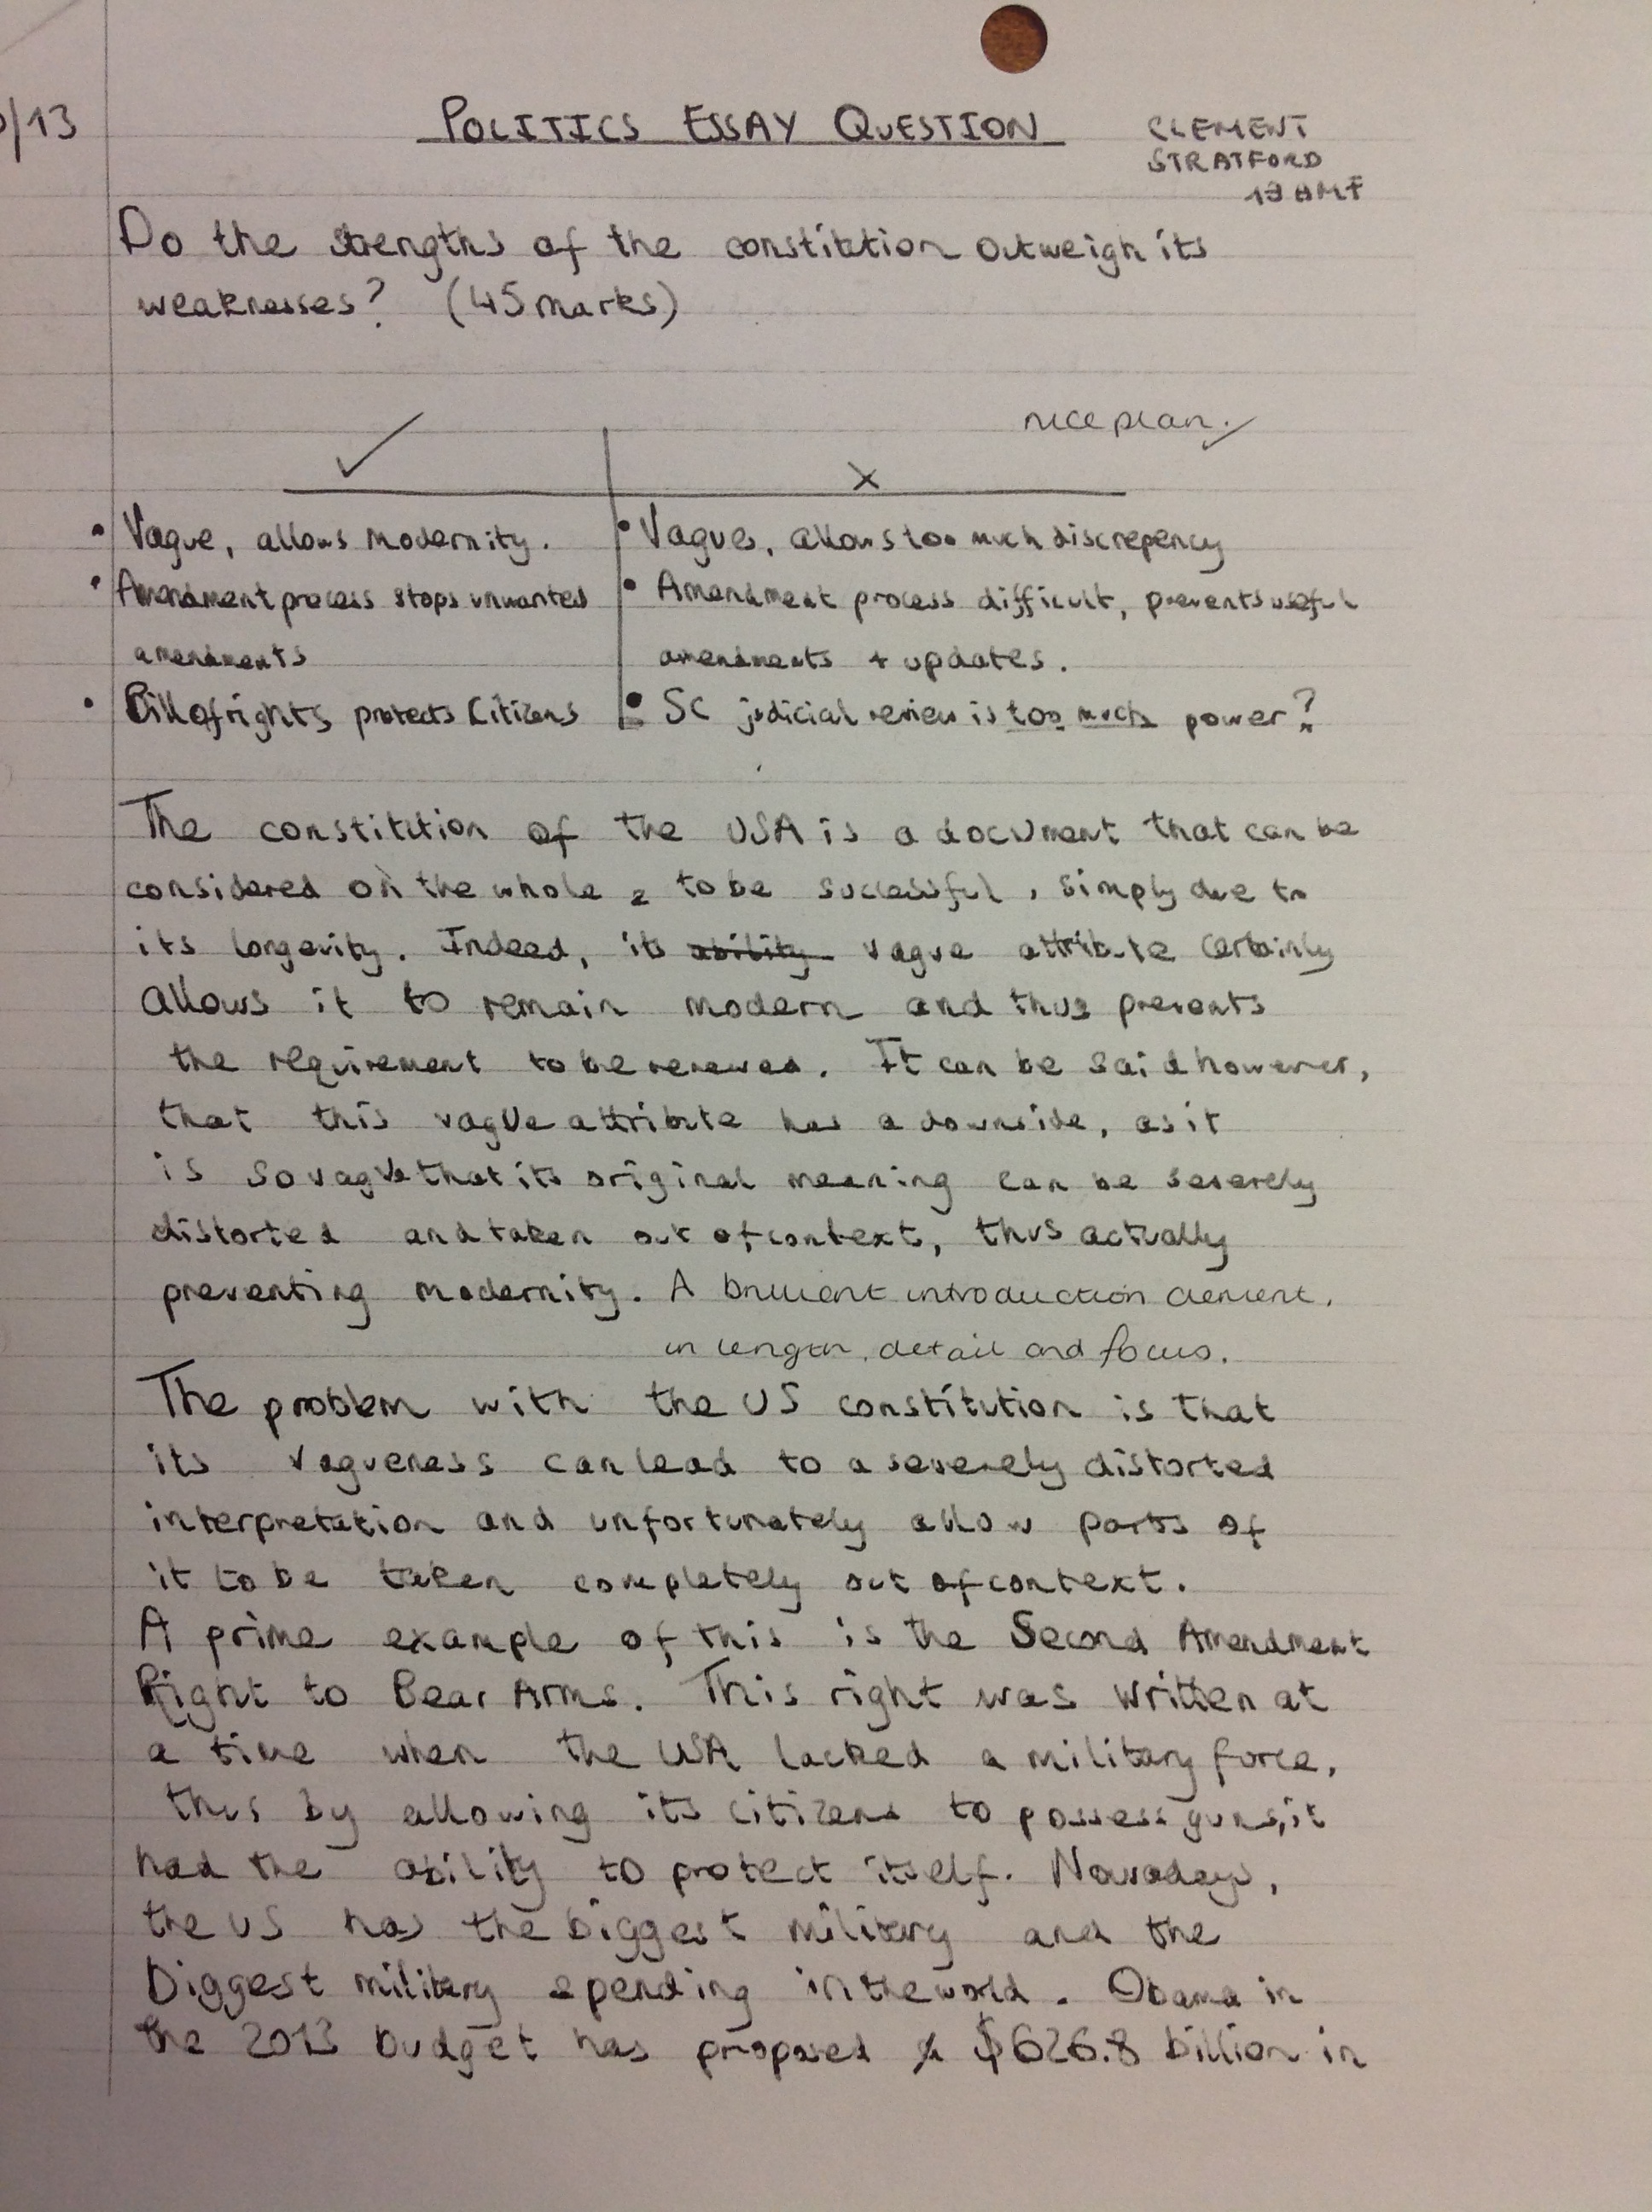 /13
POLITICS ESSAY QUESTION
CLEMENT
STRATFORD
Do the strengths of the constitution outweigh its
weaknesses? (45 marks)
nice plan.
✓
X
• Vague, allows modernity.
• Amendment process stops unwanted
amendments
• Bill of rights protects Citizens
• Vague, allows too much discrepency
• Amendment process difficult, prevents useful
amendments + updates.
• SC judicial review is too much power?
The constitution of the USA is a document that can be
considered on the whole, to be successful, simply due to
its longevity. Indeed, its ability vague attribute certainly
allows it to remain modern and thus prevents
the requirement to be renewed. It can be said however,
that this vague attribute has a downside, as it
is so vague that its original meaning can be severely
distorted and taken out of context, thus actually
preventing modernity. A brilliant introduction clement,
in length, detail and focus.
The problem with the US constitution is that
its vagueness can lead to a severely distorted
interpretation and unfortunately allow parts of
it to be taken completely out of context.
A prime example of this is the Second Amendment
Right to Bear Arms. This right was written at
a time when the USA lacked a military force,
thus by allowing its citizens to possess guns, it
had the ability to protect itself. Nowadays,
the US has the biggest military and the
biggest military spending in the world. Obama in
the 2013 budget has proposed $626.8 billion in